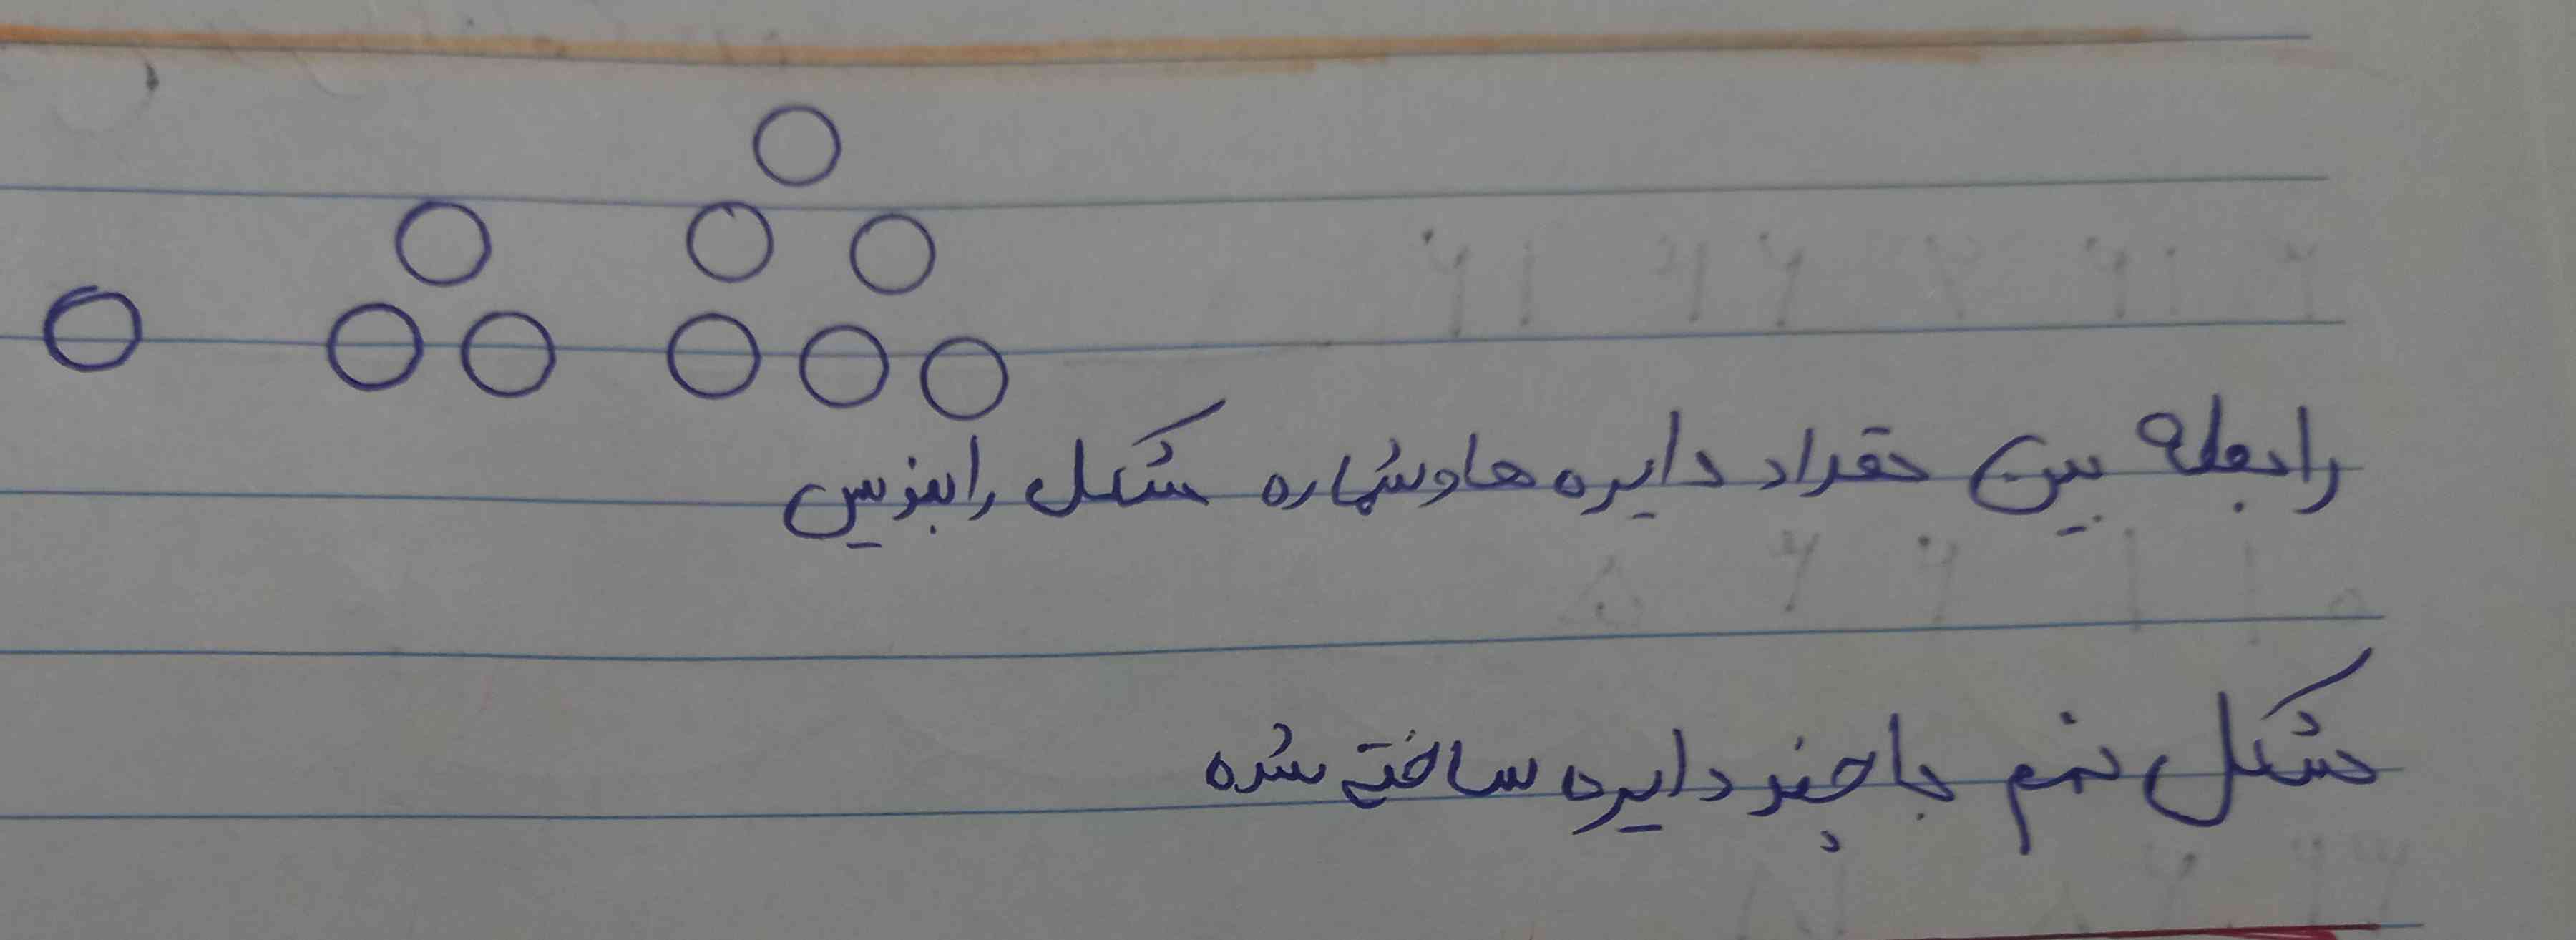 رابطه بین تعداد دایره ها و شماره شکل را بنویس
شکل نهم با چند دایره ساخته شده